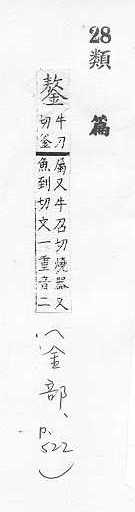 28類篇
鏊
牛刀
切釜
屬又牛召切燒器又
魚到切文一重音二
(金部、p.522)